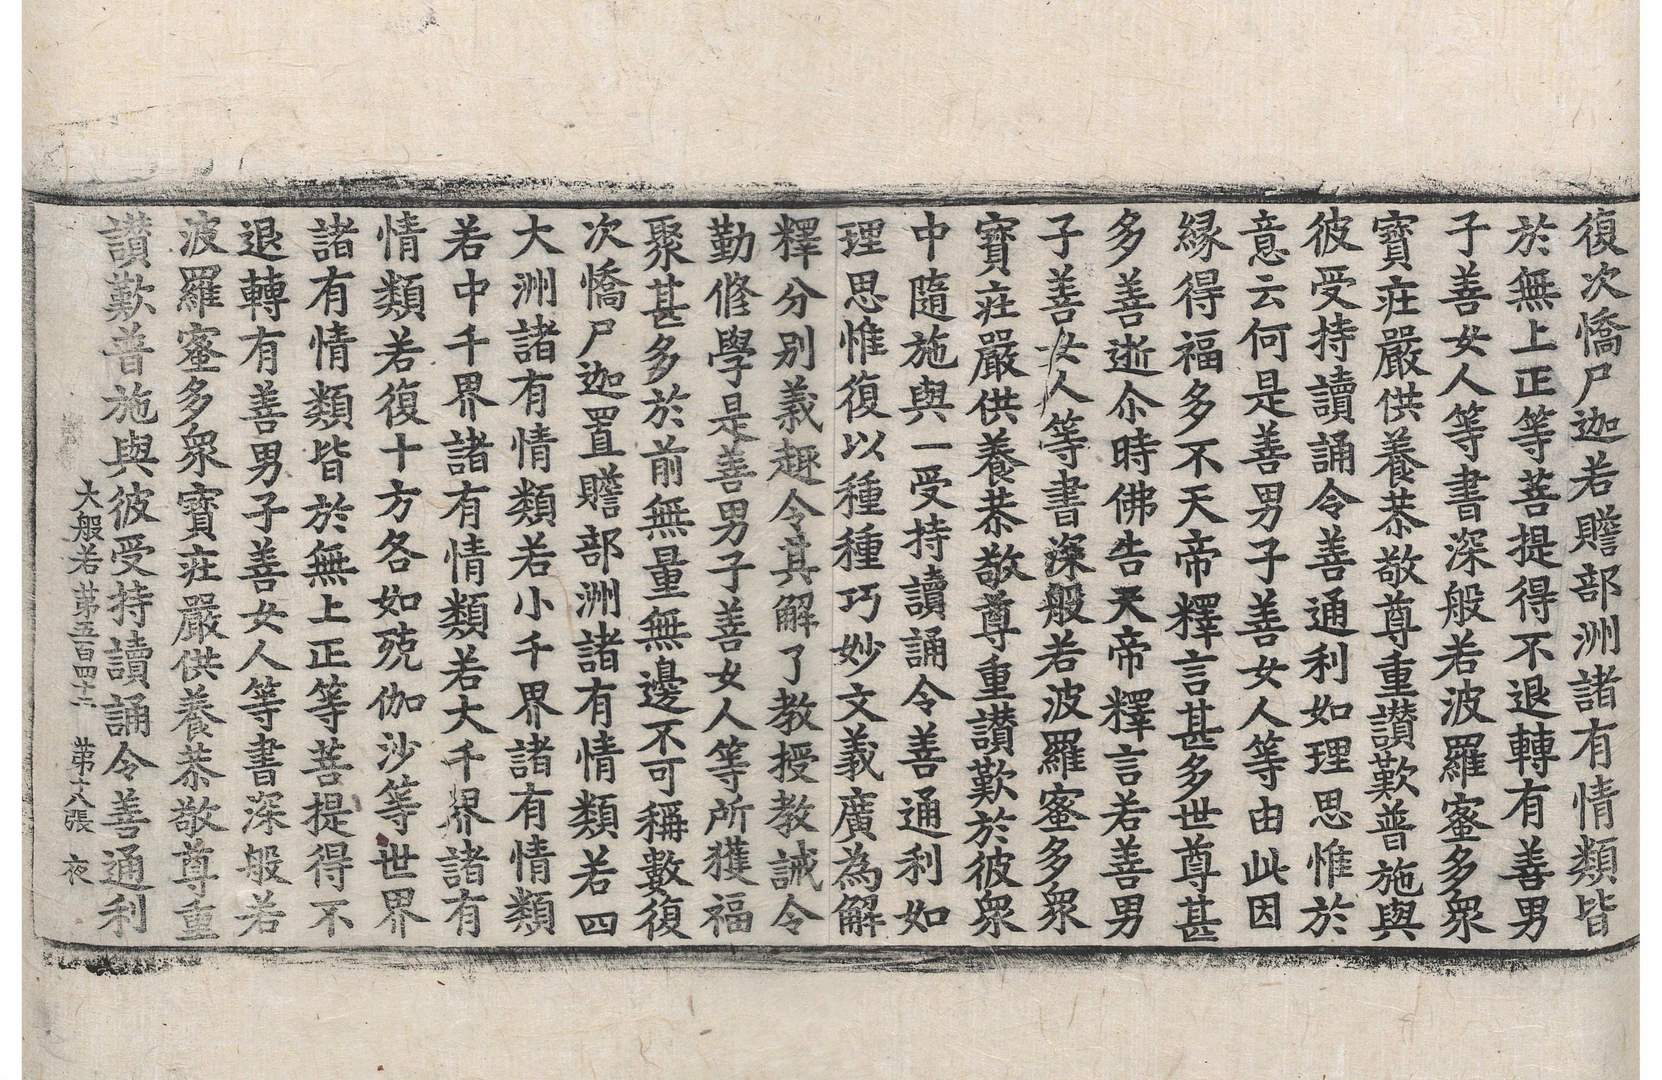 復次憍尸迦若贍部洲諸有情類皆
於無上正等菩提得不退轉有善男
子善女人等書深般若波羅蜜多衆
寶莊嚴供養恭敬尊重讃歎普施與
彼受持讀誦令善通利如理思惟於
意云何是善男子善女人等由此因
緣得福多不天帝釋言甚多世尊甚
多善逝尒時佛告天帝釋言若善男
子善女人等書深般若波羅蜜多衆
寶莊嚴供養恭敬尊重讃歎於彼衆
中隨施與一受持讀誦令善通利如
理思惟復以種種巧妙文義廣為解
釋分別義趣令其解了教授教誡令
勤修學是善男子善女人等所獲福
聚甚多於前無量無邊不可稱數復
次憍尸迦置贍部洲諸有情類若四
大洲諸有情類若小千界諸有情類
若中千界諸有情類若大千界諸有
情類若復十方各如殑伽沙等世界
諸有情類皆於無上正等菩提得不
退轉有善男子善女人等書深般若
波羅蜜多衆寶莊嚴供養恭敬尊重
讃歎普施與彼受持讀誦令善通利
大般若 苐五百四十六 苐十八張 夜